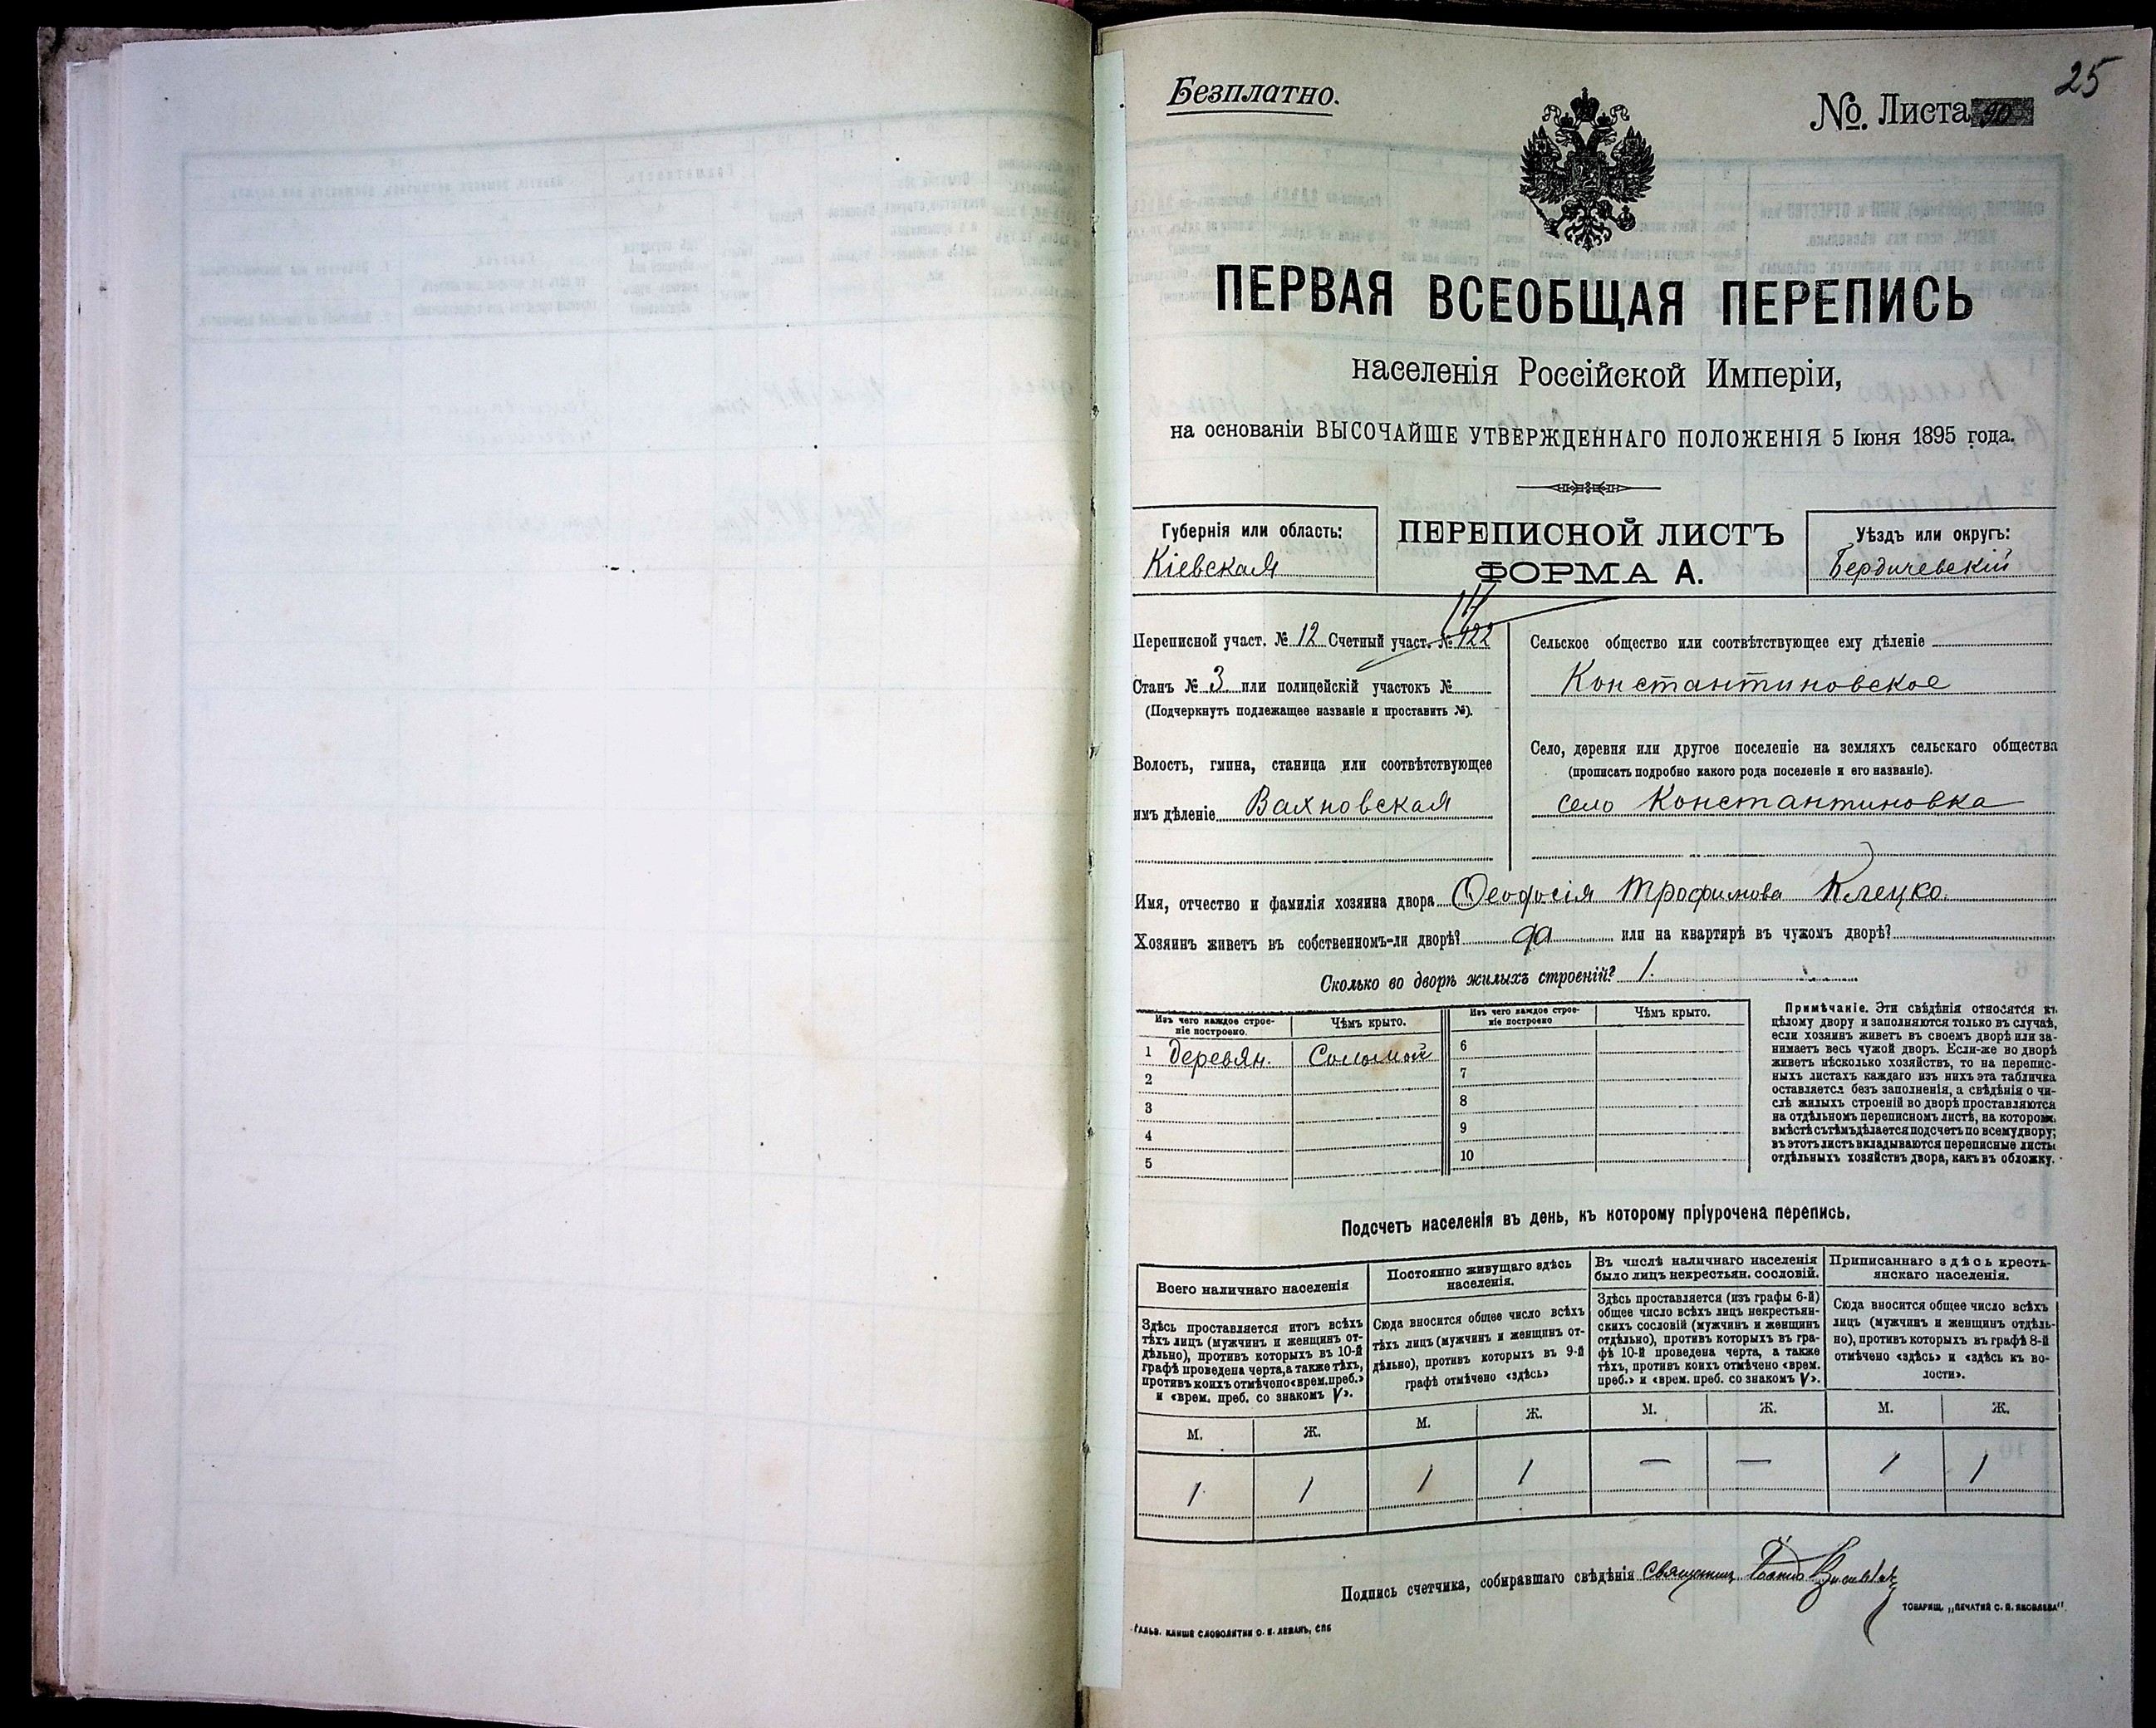 25
Безплатно.
№ Листа 90
ПЕРВАЯ ВСЕОБЩАЯ ПЕРЕПИСЬ
населенія Россійской Имперіи,
на основаніи ВЫСОЧАЙШЕ УТВЕРЖДЕННАГО ПОЛОЖЕНІЯ 5 Іюня 1895 года.
Губернія или область:
Кіевская
ПЕРЕПИСНОЙ ЛИСТЪ
ФОРМА А.
Уѣздъ или округъ:
Бердичевскій
Переписной участ. № 12 Счетный участ. № 122
Станъ № 3 или полицейскій участокъ №
(Подчеркнуть подлежащее названіе и проставить №).
Волость, гмина, станица или соотвѣтствующее
имъ дѣленіе Вахновская
Сельское общество или соотвѣтствующее ему дѣленіе
Константиновское
Село, деревня или другое поселеніе на земляхъ сельскаго общества
(прописать подробно какого рода поселеніе и его названіе).
село Константиновка
Имя, отчество и фамилія хозяина двора Ѳеодосія Трофимова Клецко.
Хозяинъ живетъ въ собственномъ-ли дворѣ? да или на квартирѣ въ чужомъ дворѣ?
Сколько во дворѣ жилыхъ строеній? 1.
Изъ чего каждое строе-
ніе построено.
Чѣмъ крыто.
Изъ чего каждое строе-
ніе построено
Чѣмъ крыто.
1 деревян. Соломой
2
3
4
5
6
7
8
9
10
Примѣчаніе. Эти свѣдѣнія относятся къ
цѣлому двору и заполняются только въ случаѣ,
если хозяинъ живетъ въ своемъ дворѣ или за-
нимаетъ весь чужой дворъ. Если-же во дворѣ
живетъ нѣсколько хозяйствъ, то на перепис-
ныхъ листахъ каждаго изъ нихъ эта табличка
оставляется безъ заполненія, а свѣдѣнія о чи-
слѣ жилыхъ строеній во дворѣ проставляются
на отдѣльномъ переписномъ листѣ, на которомъ
вмѣстѣ съ тѣмъ дѣлается подсчетъ по всему двору;
въ этотъ листъ вкладываются переписные листы
отдѣльныхъ хозяйствъ двора, какъ въ обложку.
Подсчетъ населенія въ день, къ которому пріурочена перепись.
Всего наличнаго населенія
Здѣсь проставляется итогъ всѣхъ
тѣхъ лицъ (мужчинъ и женщинъ от-
дѣльно), противъ которыхъ въ 10-й
графѣ проведена черта, а также тѣхъ,
противъ коихъ отмѣчено «врем. преб.»
и «врем. преб. со знакомъ V».
Постоянно живущаго здѣсь
населенія.
Сюда вносится общее число всѣхъ
тѣхъ лицъ (мужчинъ и женщинъ от-
дѣльно), противъ которыхъ въ 9-й
графѣ отмѣчено «здѣсь»
Въ числѣ наличнаго населенія
было лицъ некрестьян. сословій.
Здѣсь проставляется (изъ графы 6-й)
общее число всѣхъ лицъ некрестьян-
скихъ сословій (мужчинъ и женщинъ
отдѣльно), противъ которыхъ въ гра-
фѣ 10-й проведена черта, а также
тѣхъ, противъ коихъ отмѣчено «врем.
преб.» и «врем. преб. со знакомъ V».
Приписаннаго здѣсь кресть-
янскаго населенія.
Сюда вносится общее число всѣхъ
лицъ (мужчинъ и женщинъ отдѣль-
но), противъ которыхъ въ графѣ 8-й
отмѣчено «здѣсь» и «здѣсь къ во-
лости».
М. Ж. М. Ж. М. Ж. М. Ж.
1 1 1 1 — — 1 1
Подпись счетчика, собиравшаго свѣдѣнія Священник Іоаннъ
ТОВАРИЩ. „ПЕЧАТНЯ С. П. ЯКОВЛЕВА“.
ГАЛЬВ. КЛИШЕ СЛОВОЛИТНИ О. И. ЛЕМАНЪ, СПБ